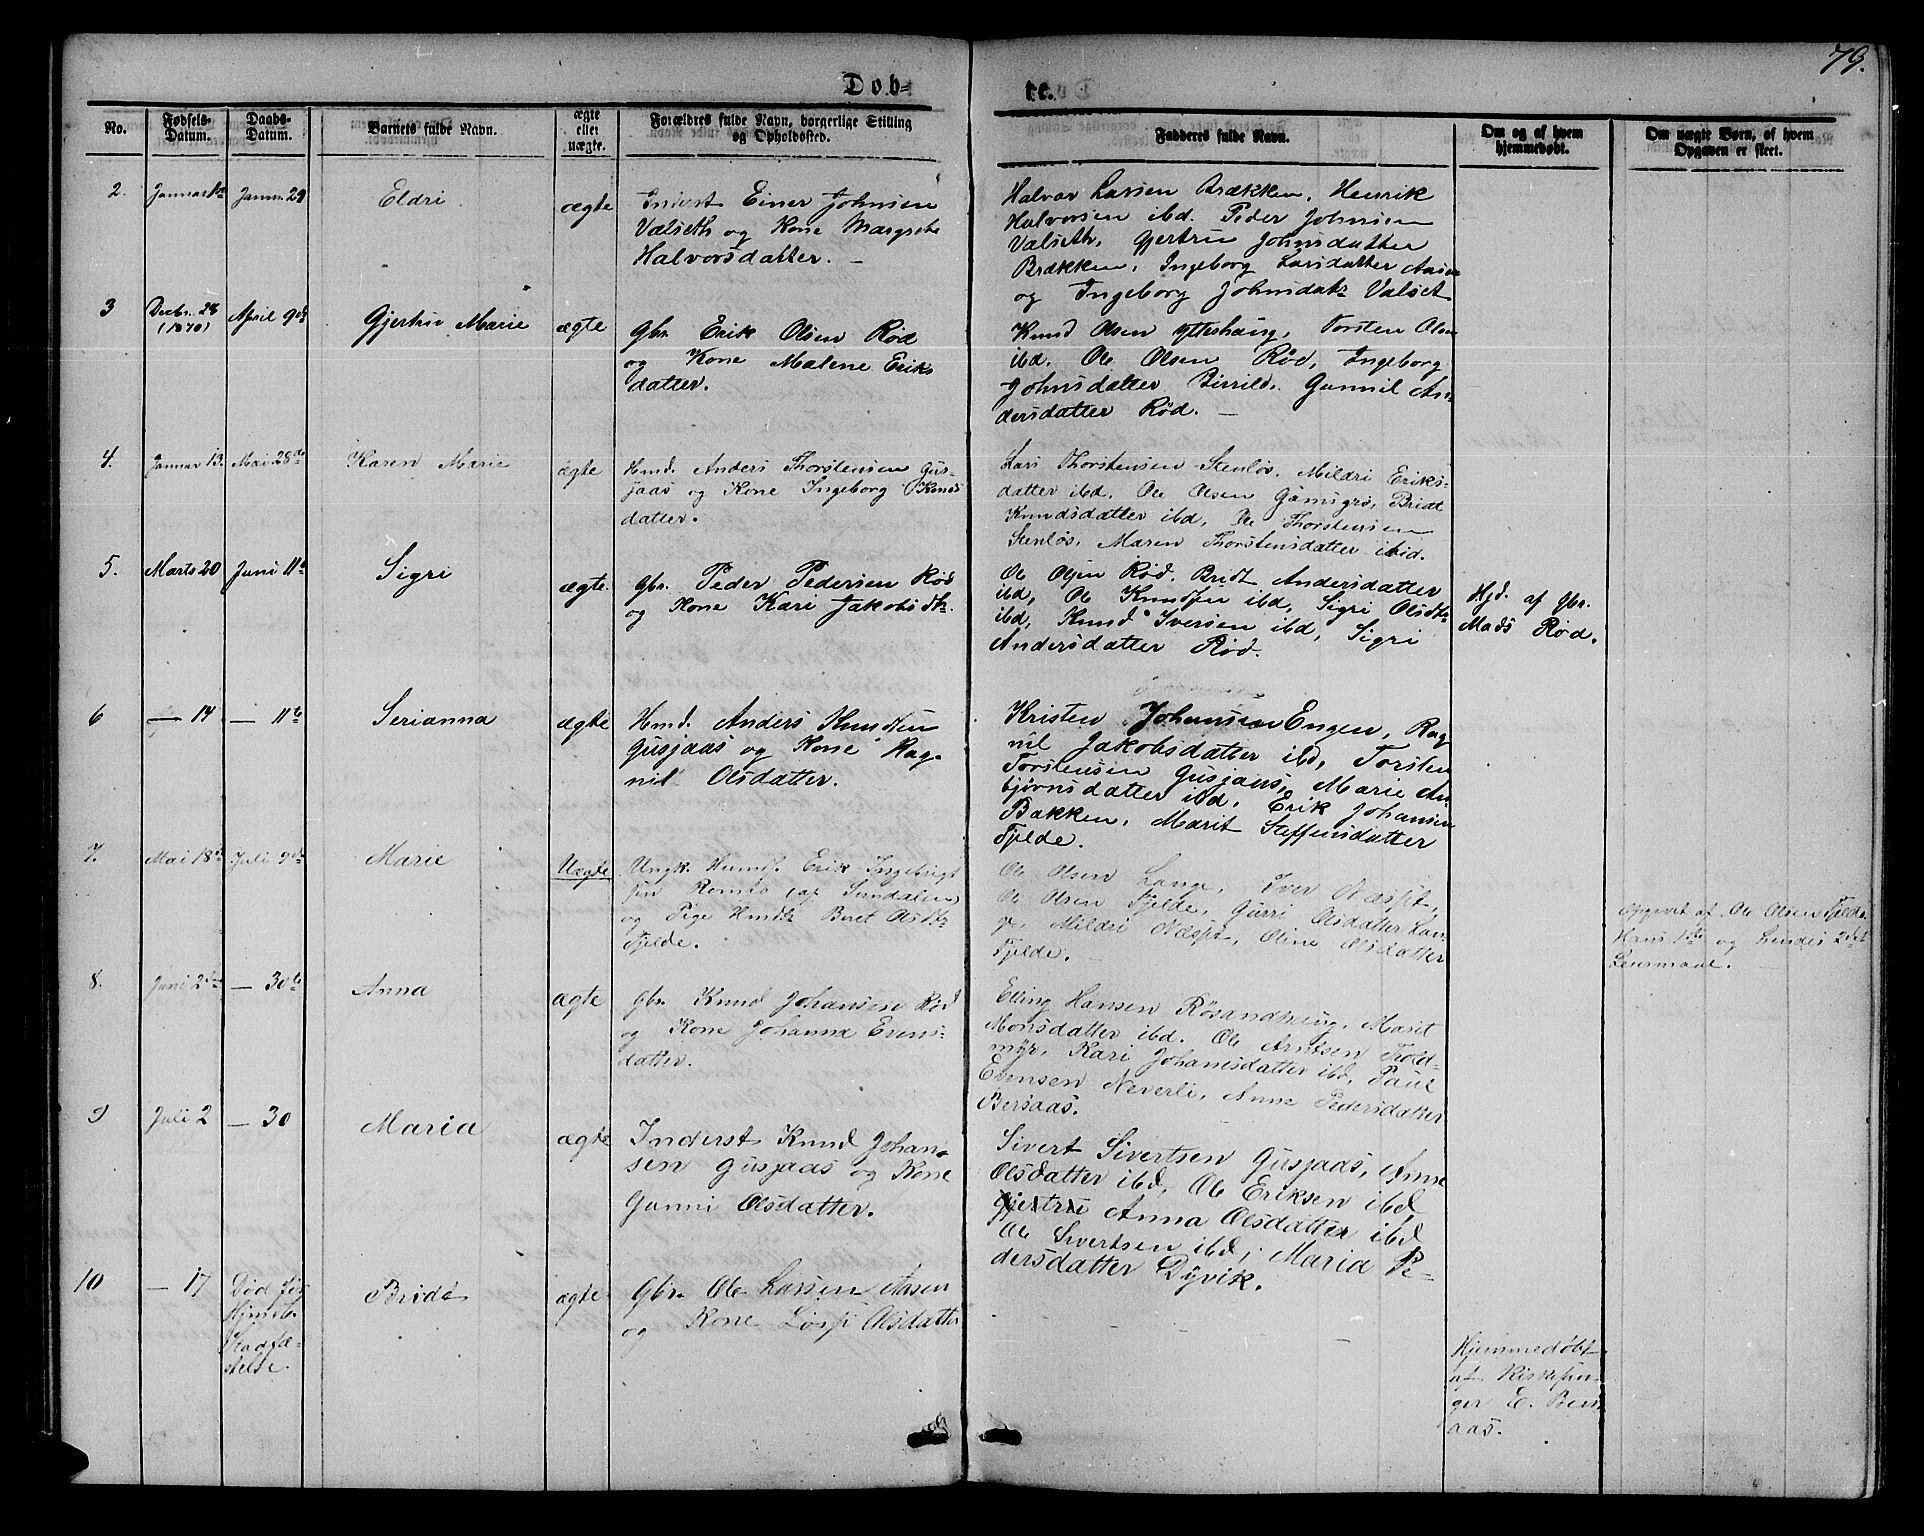 79.
Døb-
te.
No.
Fødsels-
Datum.
Daabs-
Datum.
Barnets fulde Navn.
ægte
eller
uægte.
Forældres fulde Navn, borgerlige Stilling
og Opholdssted.
Faddernes fulde Navn.
Om og af hvem
hjemmedøbt.
Om uægte Børn, af hvem
Opgaven er skeet.
2.
Januar 1te
Januar 29
Eldri
ægte
Inderst Einer Johnsen
Valseth og Kone Margrete
Halvorsdatter. —
Halvor Larsen Brækken, Henrik
Halvorsen ibd. Peder Johnsen
Valseth, Gjertru Johnsdatter
Brækken, Ingeborg Larsdatter Aasen
og Ingeborg Johnsdatr Valset
3
Decbr. 28
(1870)
April 9de
Gjertru Marie
ægte
Gbr. Erik Olsen Rød
og Kone Malene Eriks
datter.
Knud Olsen Ytterhaug, Torsten Olsen
ibd. Ole Olsen Rød, Ingeborg
Johnsdatter Birrild, Gunnil An-
dersdatter Rød. —
4.
Januar 13.
Mai 28de
Karen Marie
ægte
Hmd. Anders Thorstensen Gus-
jaas og Kone Ingeborg Knuds
datter.
Lars Thorstensen Stenløs, Mildri Eriks-
datter ibd. Ole Olsen Gamsgrø, Bridt
Knudsdatter ibd, Ole Thorstensen
Stenløs, Maren Thorstensdatter ibid.
5.
Marts 20
Juni 11te
Sigri
ægte.
Gbr. Peder Pedersen Rød
og Kone Kari Jakobsdtr.
Ole Olsen Rød. Bridt Andersdatter
ibd, Ole Knudsen ibd, Sigri Olsdtr
ibd, Knud Iversen ibd, Sigri
Andersdatter Rød.
Hjd. af Gbr.
Mads Rød.
6
— 14
— 11te
Serianna
ægte
Hmd. Anders Knudsen
Gusjaas og Kone Rag-
nil Olsdatter.
Kristen Johansen Engen, Rag
nil Jakobsdatter ibd, Torsten
Torstensen Gusjaas, Marie An
bjørnsdatter ibd, Erik Johansen
Bakken, Marit Steffensdatter
Fjelde.
7.
Mai 18de
Juli 9de
Marie
Uægte
Ungk. Husmf. Erik Ingebrigt
sen Romfo (af Sundalen)
og Pige Hmdtr Beret Olsdtr
Fjelde.
Ole Olsen Lange, Iver Næsset,
Ole Olsen Fjelde, Gurri Olsdatter Lan-
ge, Mildri Næsset, Oline Olsdatter
Fjelde. —
Opgivet af Ole Olsen Fjelde
Hans 1ste og hendes 2det
Leiermaal. —
8.
Juni 2den
— 30te
Anna
ægte
Gbr. Knud Johansen Rød
og Kone Johanna Evens-
datter.
Elling Hansen Røsandhaug, Marit
Monsdatter ibd. Ole Arntsen Trold-
myr, Kari Johansdatter ibd, Paul
Evensen Neverli, Anne Pedersdatter
Bersaas.
9
Juli 2
— 30
Maria
ægte
Inderst Knud Johan-
sen Gusjaas og Kone
Gunni Olsdatter.
Sivert Sivertsen Gusjaas, Anne
Olsdatter ibd, Ole Eriksen ibd,
Gjertru Anna Olsdatter ibd
Ole Sivertsen ibd, Maria Pe-
dersdatter Dyvik.
10
— 17
Død før
Hjmdb.
Stadfæ-
stelse.
Bride
ægte
Gbr. Ole Larsen Aasen
og Kone Lossi Olsdatter
Hjemmedøbt
af Kirkesan-
ger E. Bers
aas.